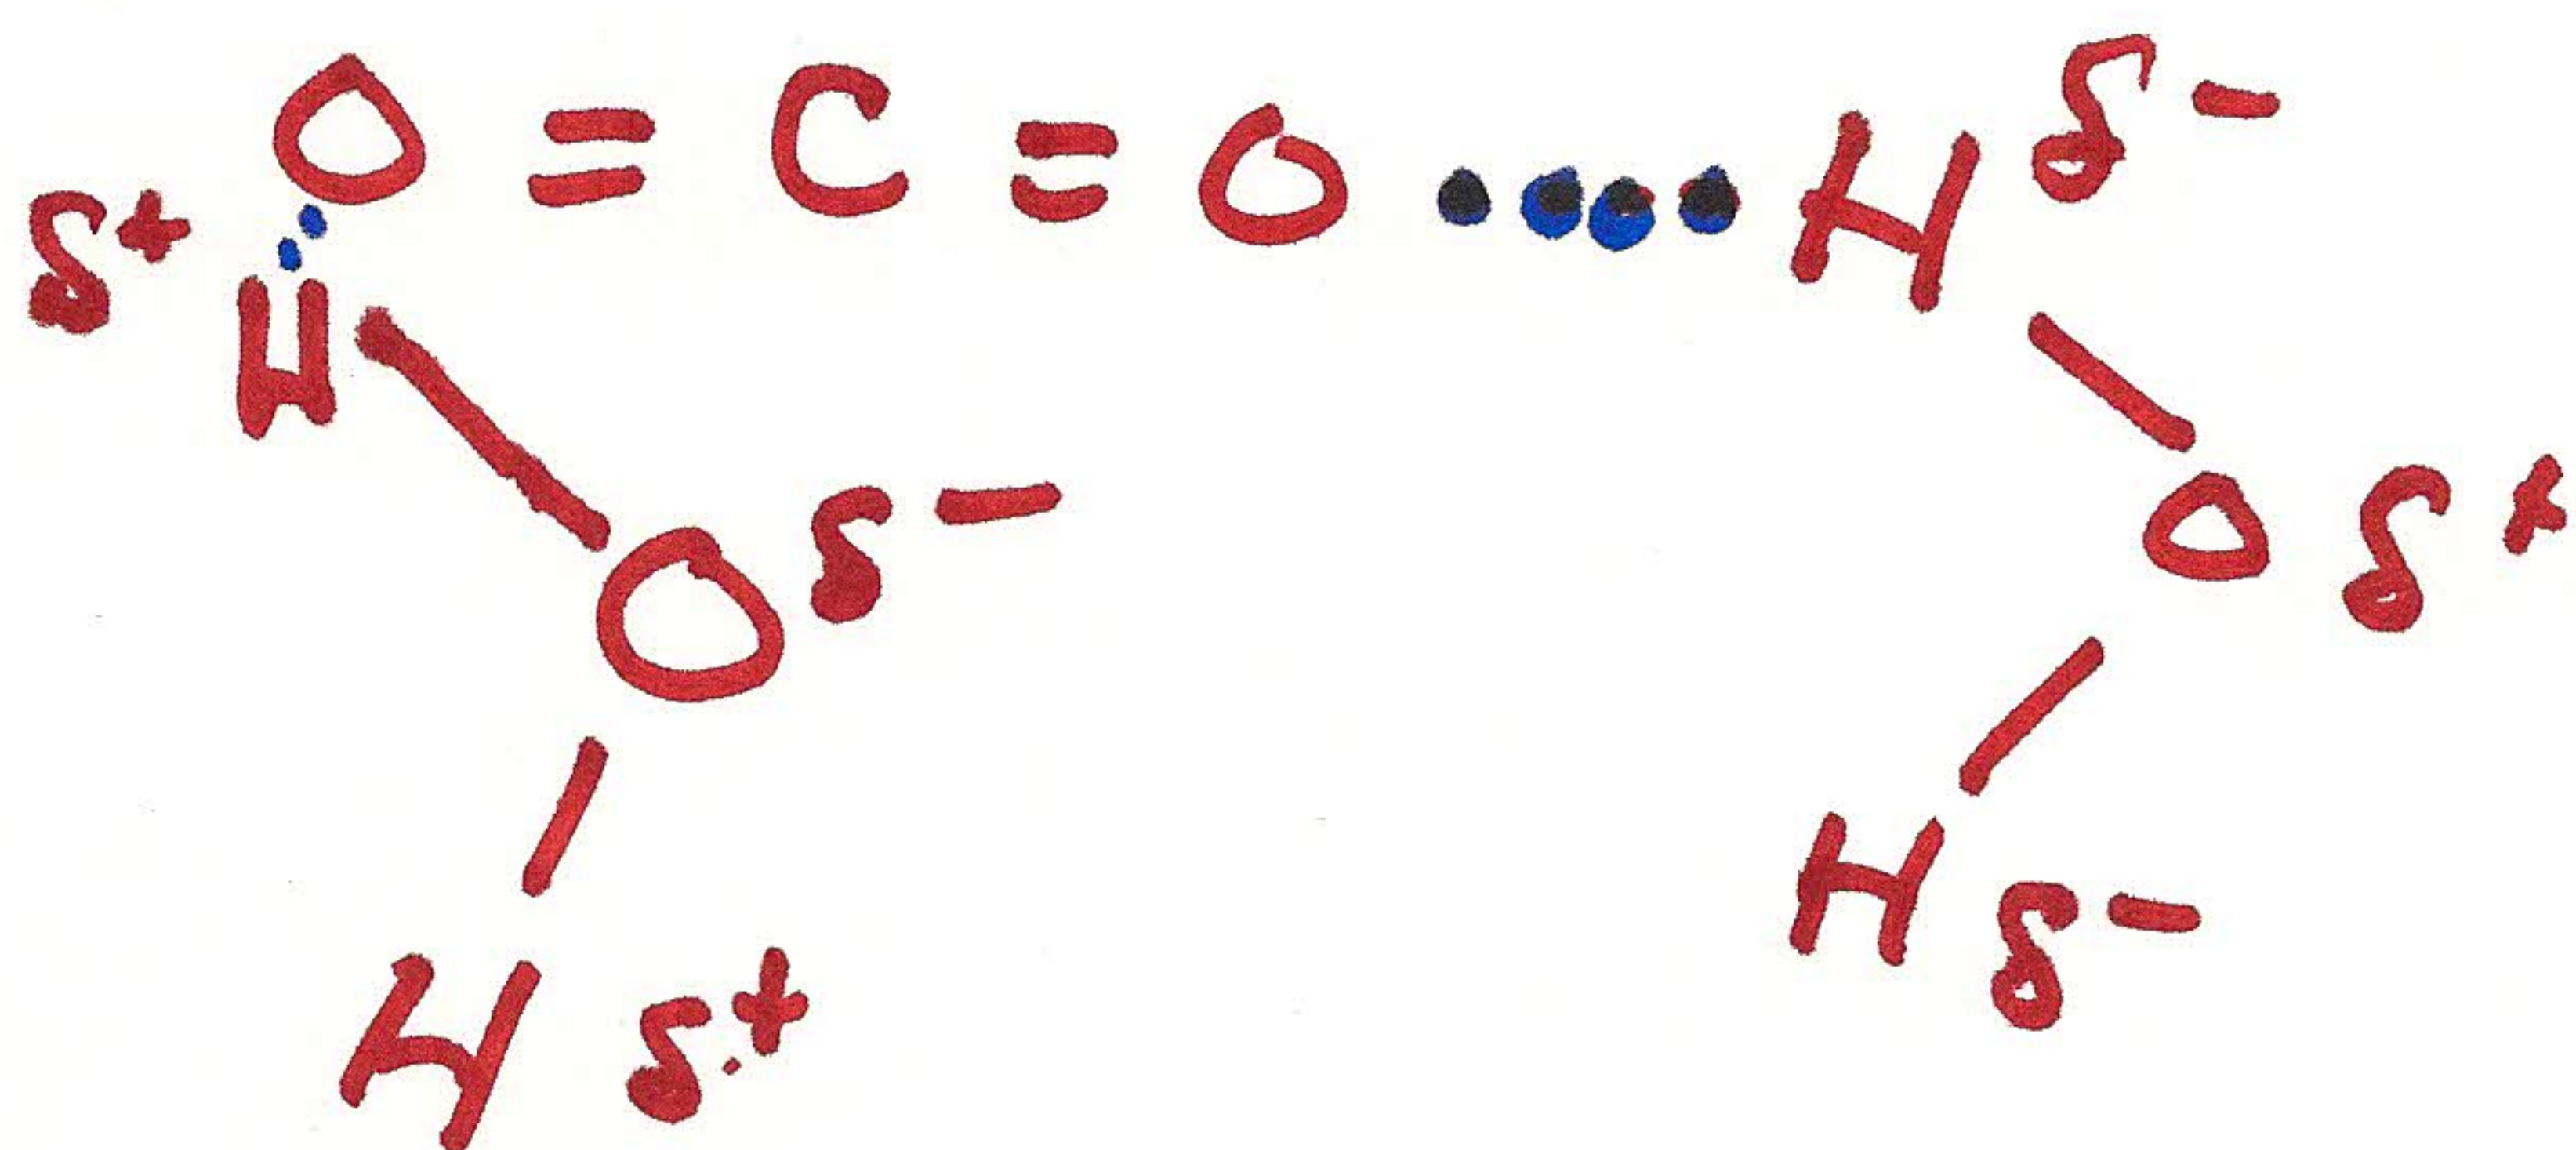 O = C = O •••• H δ-
δ+ H
O δ- O δ+
H δ-
H δ+